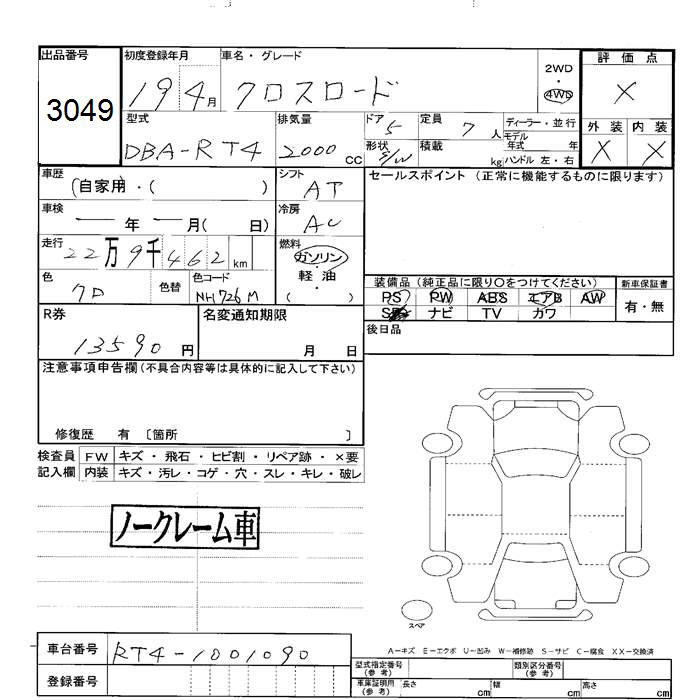 出品番号 初度登録年月 車名・グレード 評価点
3049 19 4月 クロスロード 2WD 4WD ×
型式 排気量 ドア 5 定員 7 人 ディーラー・並行 外装 内装
DBA-RT4 2000 CC 形状 S/W 積載 kg モデル年式 年 ハンドル 左・右 × ×
車歴 (自家用・( ) シフト AT セールスポイント (正常に機能するものに限ります)
車検 ― 年 ― 月( 日) 冷房 AC
走行 22万9千462km 燃料 ガソリン・軽油・( )
色 クロ 色替 色コード NH726M 装備品 (純正品に限り○をつけてください) 新車保証書
PS PW ABS エアB AW 有・無
R券 名変通知期限 SR ナビ TV カワ
13590円 月 日 後日品
注意事項申告欄(不具合内容等は具体的に記入して下さい)
修復歴 有 〔箇所 〕
検査員 FW キズ・飛石・ヒビ割・リペア跡・×要
記入欄 内装 キズ・汚レ・コゲ・穴・スレ・キレ・破レ
ノークレーム車
スペア
車台番号 RT4-1001090 A-キズ E-エクボ U-凹み W-補修跡 S-サビ C-腐食 XX-交換済
登録番号 型式指定番号(参考) 類別区分番号(参考)
車庫証明用(参考) 長さ cm 幅 cm 高さ cm